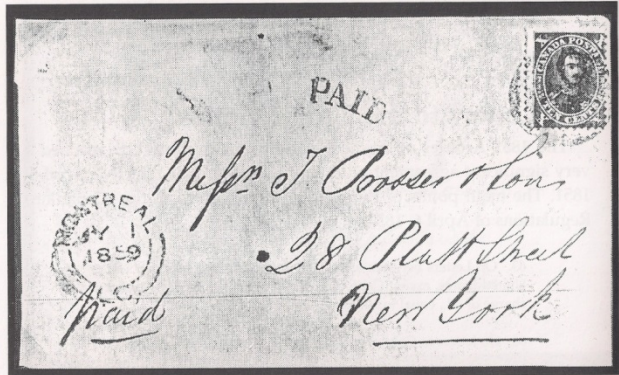 CANADA POSTAGE
TEN CENTS
PAID
Messrs T. Prosser & Son
28 Platt Street
New York
MONTREAL
JY 1
1859
Paid